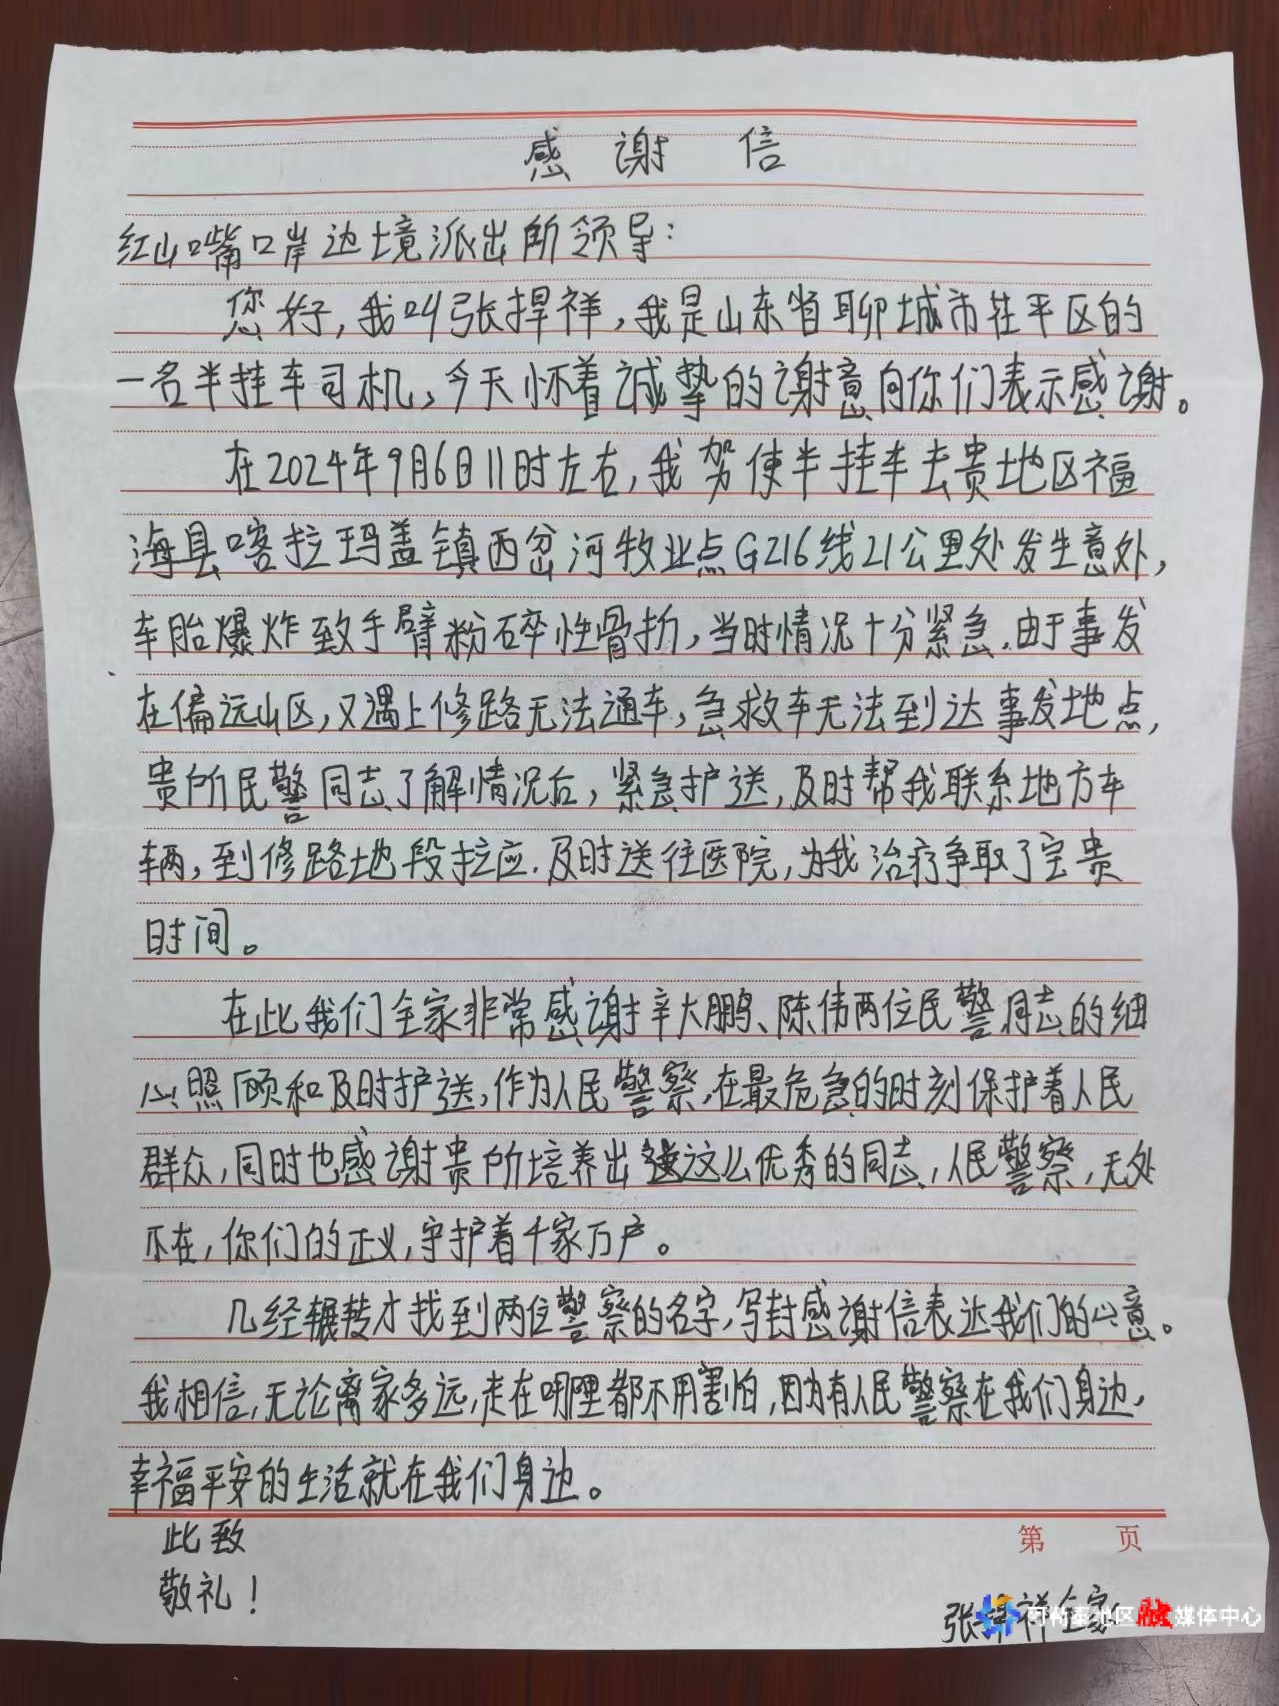 感谢信
红山嘴口岸边境派出所领导：
您好，我叫张捍祥，我是山东省聊城市茌平区的
一名半挂车司机，今天怀着诚挚的谢意向你们表示感谢。
在2024年9月6日11时左右，我驾使半挂车去贵地区福
海县喀拉玛盖镇西岔河牧业点G216线21公里处发生意外，
车胎爆炸致手臂粉碎性骨折，当时情况十分紧急，由于事发
在偏远山区，又遇上修路无法通车，急救车无法到达事发地点，
贵所民警同志了解情况后，紧急护送，及时帮我联系地方车
辆，到修路地段接应，及时送往医院，为我治疗争取了宝贵
时间。
在此我们全家非常感谢辛大鹏、陈伟两位民警同志的细
心照顾和及时护送，作为人民警察，在最危急的时刻保护着人民
群众，同时也感谢贵所培养出这么优秀的同志，人民警察，无处
不在，你们的正义，守护着千家万户。
几经辗转才找到两位警察的名字，写封感谢信表达我们的心意。
我相信，无论离家多远，走在哪里都不用害怕，因为有人民警察在我们身边，
幸福平安的生活就在我们身边。
第 页
此致
敬礼！
张捍祥全家
阿勒泰地区融媒体中心